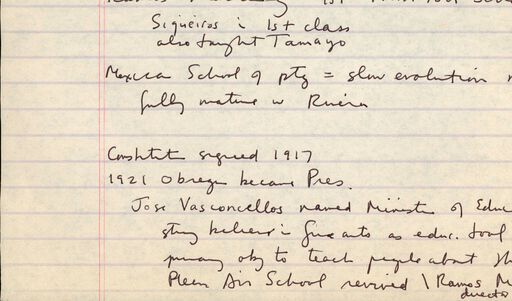 Siqueiros in 1st class
also taught Tamayo
Mexican School of ptg = slow evolution
fully mature w Rivera
Constitut signed 1917
1921 Obregon became Pres.
Jose Vasconcellos named Minister of Educ
strong believer in fine arts as educ. tool
primary obj to teach people about
Plein Air School revived \ Ramos M
director